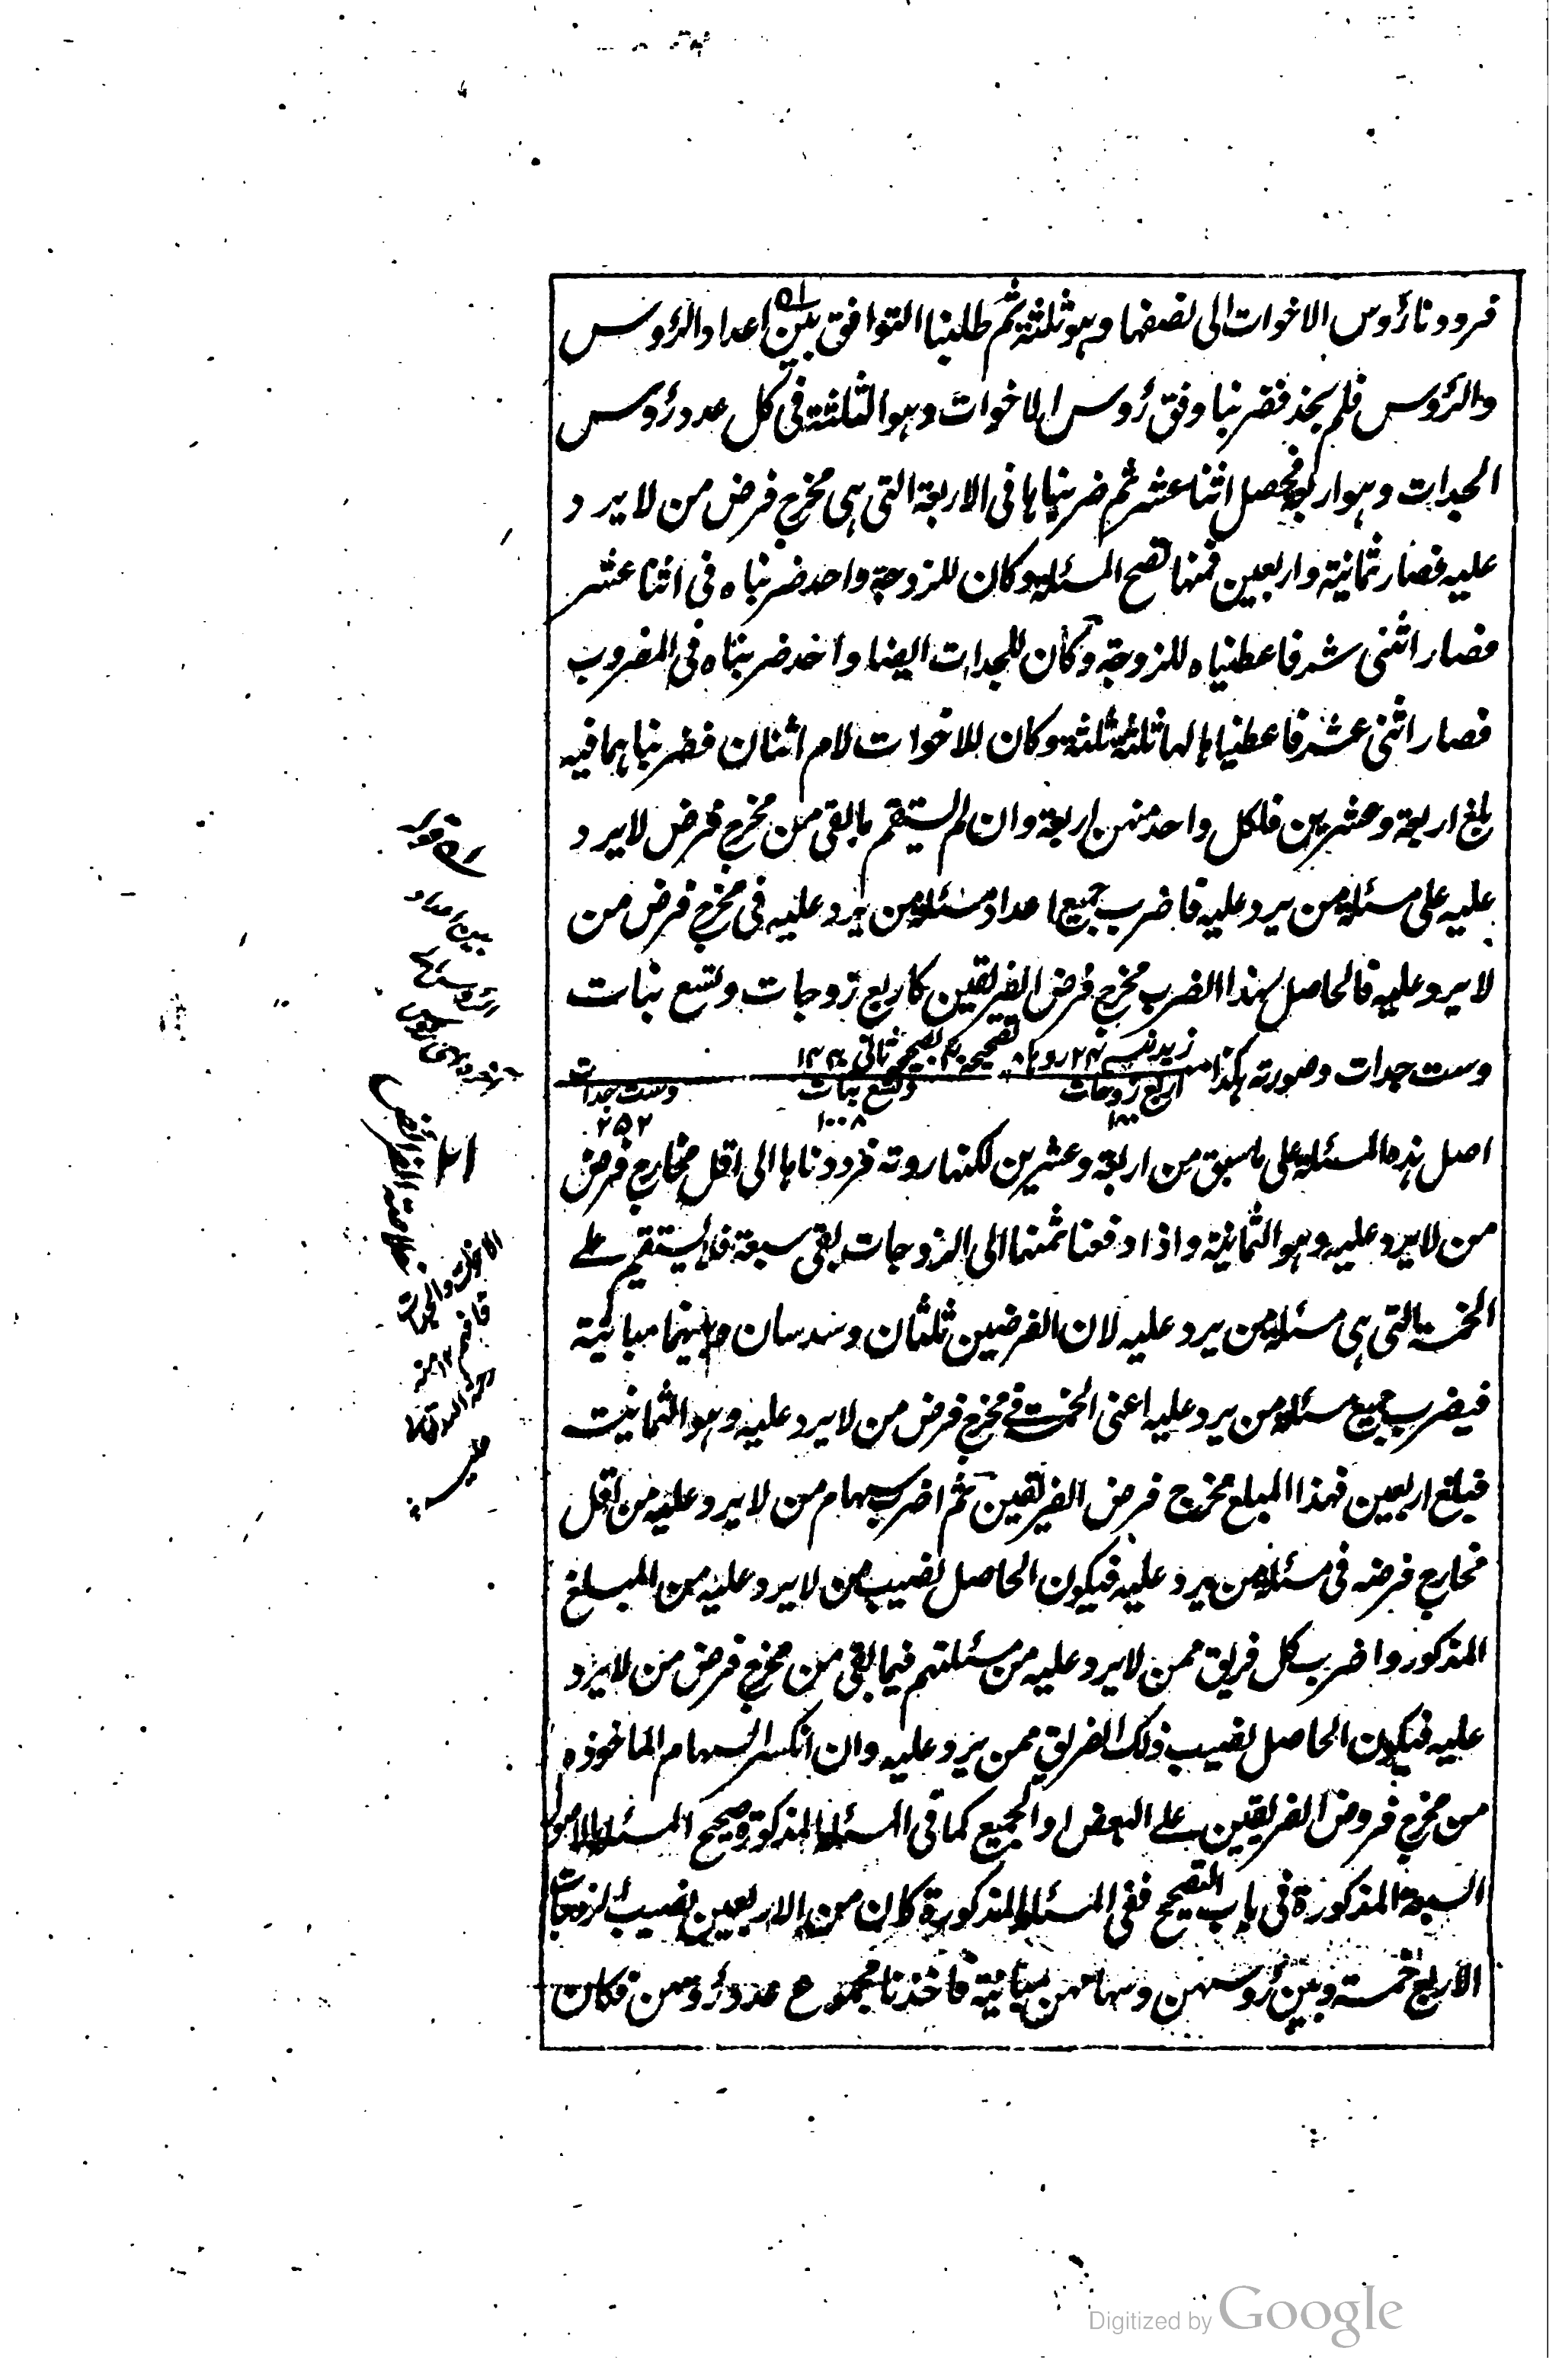 فرددنا رؤس الاخوات الى نصفها وهو ثلثة ثم طلبنا التوافق بين اعداد الرؤس
والرؤس فلم نجد فضربنا وفق رؤس الاخوات وهو الثلثة فى كل عدد رؤس
الجدات وهو اربعة فحصل اثنا عشر ثم ضربناها فى الاربعة التى هى مخرج فرض من لا يرد
عليه فصار ثمانية واربعين فمنها تصح المسئلة وكان للزوجة واحد ضربناه فى اثنا عشر
فصار اثنى شر فاعطيناه للزوجة وكان للجدات ايضا واحد ضربناه فى المضروب
فصار اثنى عشر فاعطيناها لها ثلثة ثلثة وكان للاخوات لام اثنان فضربناهما فيه
بلغ اربعة وعشرين فلكل واحد منهن اربعة وان لم يستقم ما بقى من مخرج فرض لا يرد
عليه على مسئلة من يرد عليه فاضرب جميع اعداد مسئلة من يرد عليه فى مخرج فرض من
لا يرد عليه فالحاصل بهذا الضرب مخرج فرض الفريقين كاربع زوجات وتسع بنات
وست جدات وصورته هكذا
زيد مسـ ٢٤ رد ها ٨ تصحيحه ٤٠ تصحيح ثانى ١٤٤٠
اربع زوجات وتسع بنات وست جدات
١٨٠ ١٠٠٨ ٢٥٢
اصل هذه المسئلة على ما سبق من اربعة وعشرين لكنها ردية فرددناها الى اقل مخارج فرض
من لا يرد عليه وهو الثمانية واذا دفعنا ثمنها الى الزوجات بقى سبعة فلا يستقيم على
الخمسة التى هى مسئلة من يرد عليه لان الفرضين ثلثان وسدسان وبينهما مباينة
فيضرب جميع مسئلة من يرد عليه اعنى الخمسة فى مخرج فرض من لا يرد عليه وهو الثمانية
فبلغ اربعين فهذا المبلغ مخرج فرض الفريقين ثم اضرب سهام من لا يرد عليه من اقل
مخارج فرضه فى مسئلة من يرد عليه فيكون الحاصل نصيب من لا يرد عليه من المبلغ
المذكور واضرب كل فريق ممن لا يرد عليه من مسئلتهم فيما بقى من مخرج فرض من لا يرد
عليه فيكون الحاصل نصيب ذلك الفريق ممن يرد عليه وان انكسر السهام الماخوذه
من مخرج فروض الفريقين على البعض او الجميع كما فى المسئلة المذكورة صحح المسئلة بالاصول
السبعة المذكورة فى باب التصحيح ففى المسئلة المذكورة كان من الاربعين نصيب الزوجات
الاربع خمسة وبين رؤسهن وسهامهن مباينة فاخذنا مجموع عدد رؤسهن فكان
قوله
بين اعداد
اى
خلاصة الفرائض
الاخوات والجدات
فافهم ١٢ منه
رحمة الله تعالى
عليه
Digitized by Google